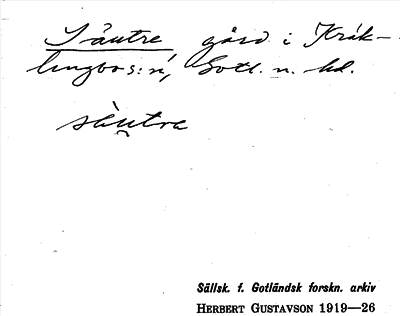 Såutre gård i Kräk-
lingbo s:n, Gotl. n. hd.
sàutra
Sällsk. f. Gotländsk forskn. arkiv
HERBERT GUSTAVSON 1919—26